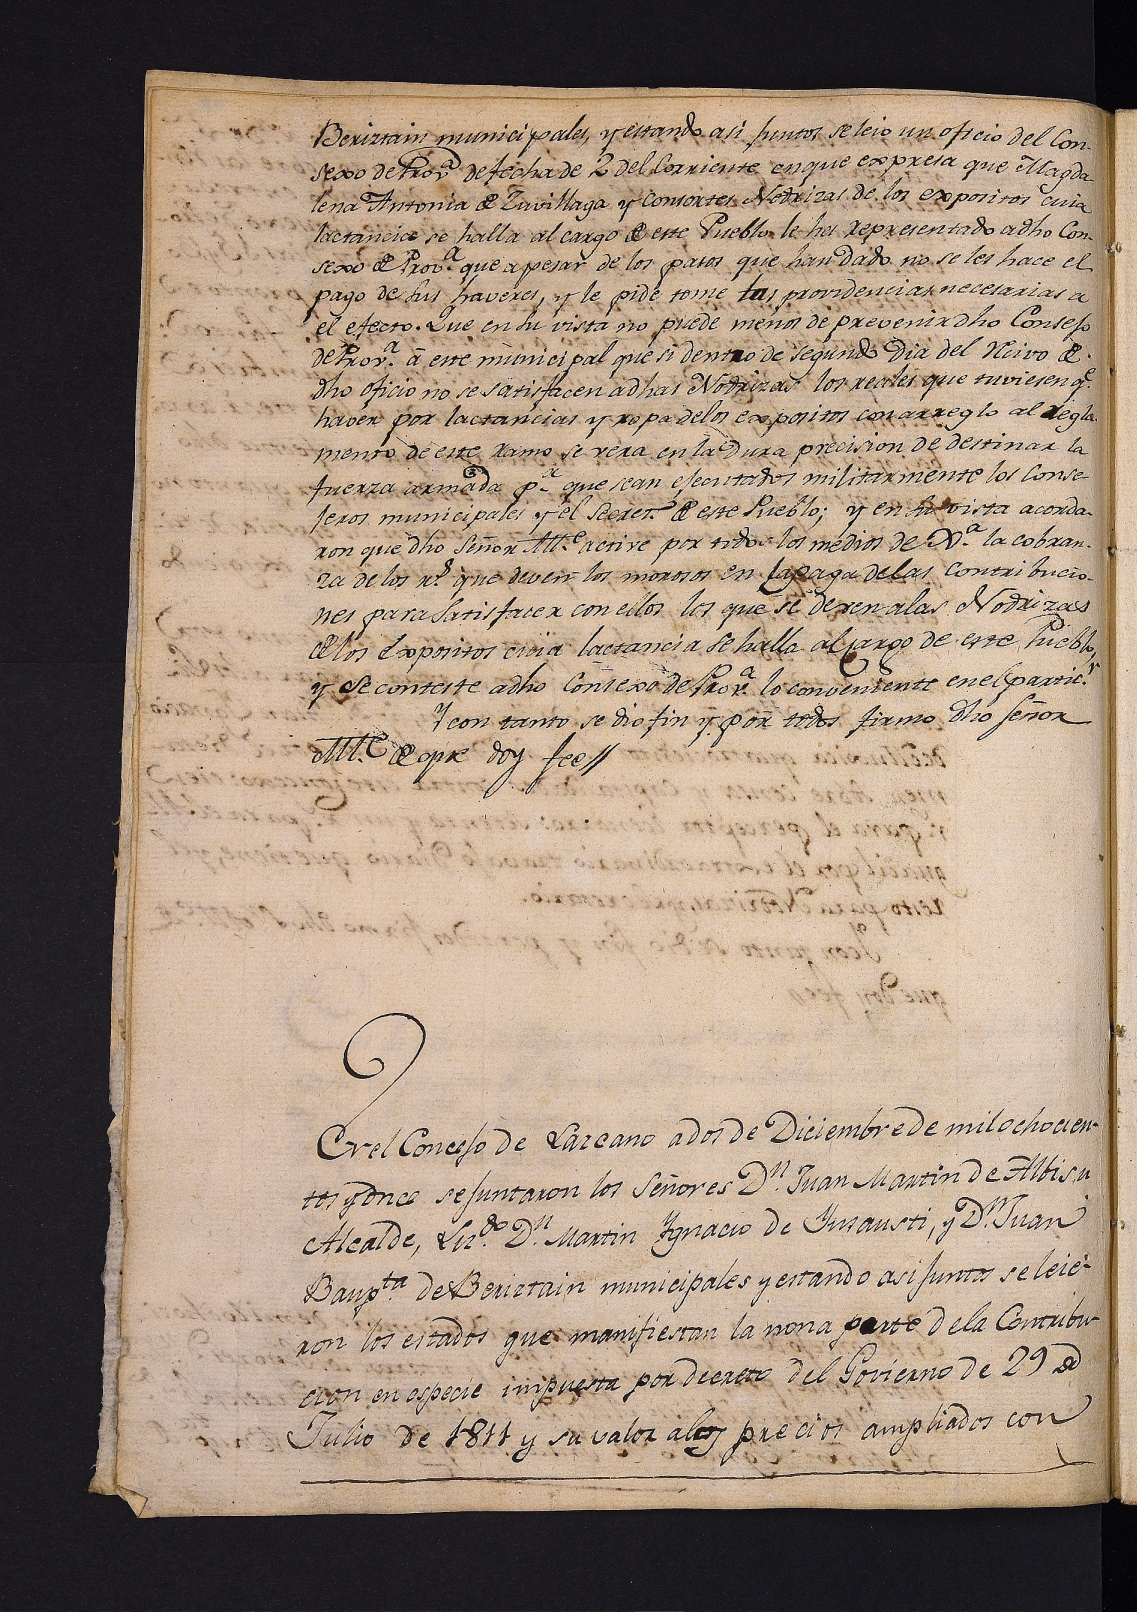 Beriztain municipales, y estando asi juntos se leio un oficio del Con-
sexo de Prov.ª de fecha de 2 del Corriente en que expresa que Magda-
lena Antonia de Zuvillaga y consortes Nodrizas de los expositos cuia
lactancia se halla al cargo de este Pueblo le ha representado a dho Con-
sexo de Prov.ª que apesar de los pasos que han dado no se les hace el
pago de sus haveres, y le pide tome las providencias necesarias a
el efecto. Que en su vista no puede menos de prevenir a dho Consejo
de Prov.ª á este municipal que si dentro de segundo Dia del Recivo de
dho oficio no se satisfacen a dhas Nodrizas los reales que tuviesen q.e
haver por lactancias y ropa de los expositos con arreglo al Regla-
mento de este ramo se vera en la Dura precision de destinar la
fuerza armada p.ª que sean ejecutados militarmente los Conse-
jeros municipales y el Secret.º de este Pueblo; y en su vista acorda-
ron que dho Señor M.e active por todos los medios de D.ª la cobran-
za de los r.s que deven los morosos en la paga de las Contribucio-
nes para satisfacer con ellos los que se deven a las Nodrizas
de los Expositos cuia lactancia se halla al cargo de este Pueblo,
y Se conteste a dho Consexo de Prov.ª lo conveniente en el partic.r
Y con tanto se dio fin y por todos firmo dho señor
M.e de que doy fee//
En el Concejo de Lazcano a dos de Diciembre de mil ochocien-
tos y once se juntaron los Señores D.n Juan Martin de Albisu
Alcalde, Liz.do D.n Martin Ygnacio de Ynsausti, y D.n Juan
Baup.ta de Beriztain municipales y estando asi juntos se leie-
ron los estados que manifiestan la nona parte de la Contribu-
cion en especie impuesta por decreto del Govierno de 29 de
Julio de 1811 y su valor a los precios ampliados con